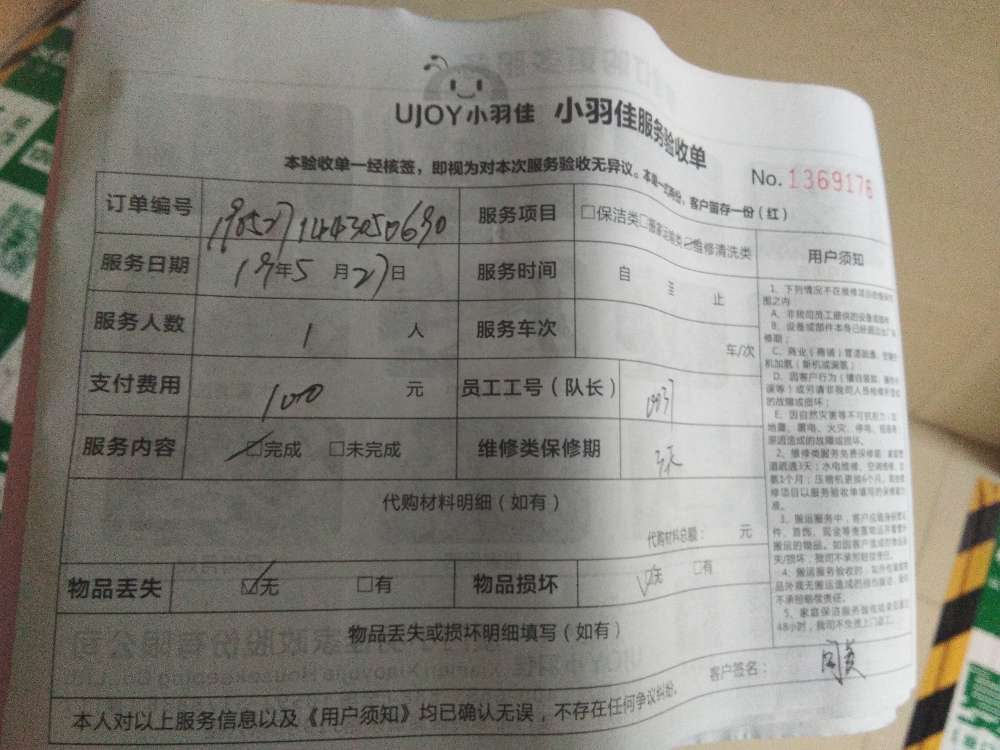 UJOY小羽佳 小羽佳服务验收单
本验收单一经核签，即视为对本次服务验收无异议。本单一式两份，客户留存一份（红）
No. 1369176
订单编号 1905271443050690 服务项目 □保洁类□搬家运输类☑维修清洗类
服务日期 19年5月27日 服务时间 自 至 止
服务人数 1 人 服务车次 车/次
支付费用 100 元 员工工号（队长）
服务内容 ☑完成 □未完成 维修类保修期 3天
代购材料明细（如有）
代购材料总额： 元
物品丢失 ☑无 □有 物品损坏 ☑无 □有
物品丢失或损坏明细填写（如有）
客户签名：
本人对以上服务信息以及《用户须知》均已确认无误，不存在任何争议纠纷。
用户须知
1、下列情况不在维修项目保修范
围之内
A、非我司员工提供的设备或部件
B、设备或部件本身已经超出厂保
修期；
C、商业（商铺）管道疏通、空调
机加氨（新机或漏氨）
D、因客户行为
的故障或损坏；
E、因自然灾害等不可抗拒力：如
地震、雷电、火灾、停电、
原因造成的故障或损坏。
2、维修类服务免费保修期：家庭管
道疏通3天；水电维修、空调维修、加
氨1个月；压缩机更换6个月。其他维
修项目以服务验收单填写的保修期为
准。
3、搬运服务中，客户应随身保管
件、首饰、现金等贵重物品
搬运的物品。如因客户造成的物品丢
失/损坏，我司不承担赔偿责任。
4、搬运服务验收时，如外包装完
品外观无搬运造成的损伤痕迹，我司
不承担赔偿责任。
5、家庭保洁服务验收或离
48小时，我司不负责上门返工。